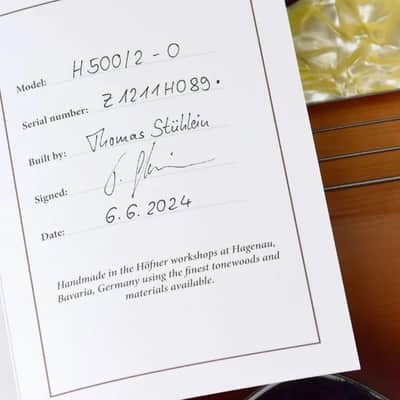 Model: H500/2-0
Serial number: Z1211H089.
Built by: Thomas Stühlein
Signed:
Date: 6.6.2024
Handmade in the Höfner workshops at Hagenau,
Bavaria, Germany using the finest tonewoods and
materials available.